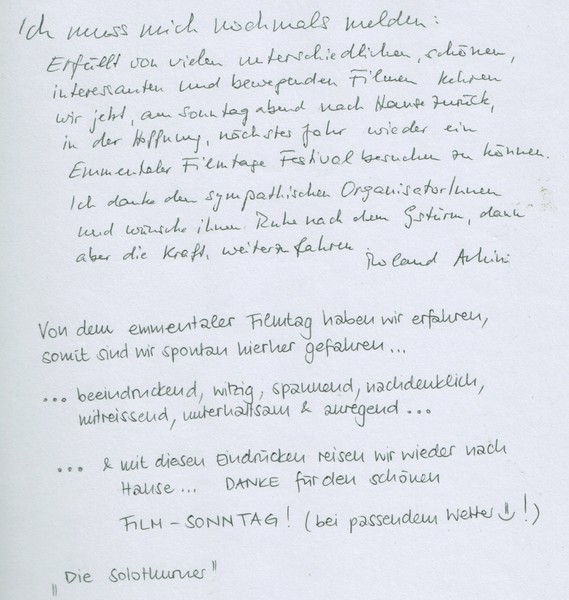 Ich muss mich nochmals melden:
Erfüllt von vielen unterschiedlichen, schönen,
interessanten und bewegenden Filmen kehren
wir jetzt, am Sonntag abend nach Hause zurück,
in der Hoffnung, nächstes Jahr wieder ein
Emmentaler Filmtage Festival besuchen zu können.
Ich danke den sympathischen OrganisatorInnen
und wünsche ihnen Ruhe nach dem Gstürm, dann
aber die Kraft, weiterzufahren
Roland
Von dem emmentaler Filmtag haben wir erfahren,
somit sind wir spontan hierher gefahren...
... beeindruckend, witzig, spannend, nachdenklich,
mitreissend, unterhaltsam & anregend...
... & mit diesen Eindrücken reisen wir wieder nach
Hause... DANKE für den schönen
FILM-SONNTAG! (bei passendem Wetter !)
"Die Solothurner"